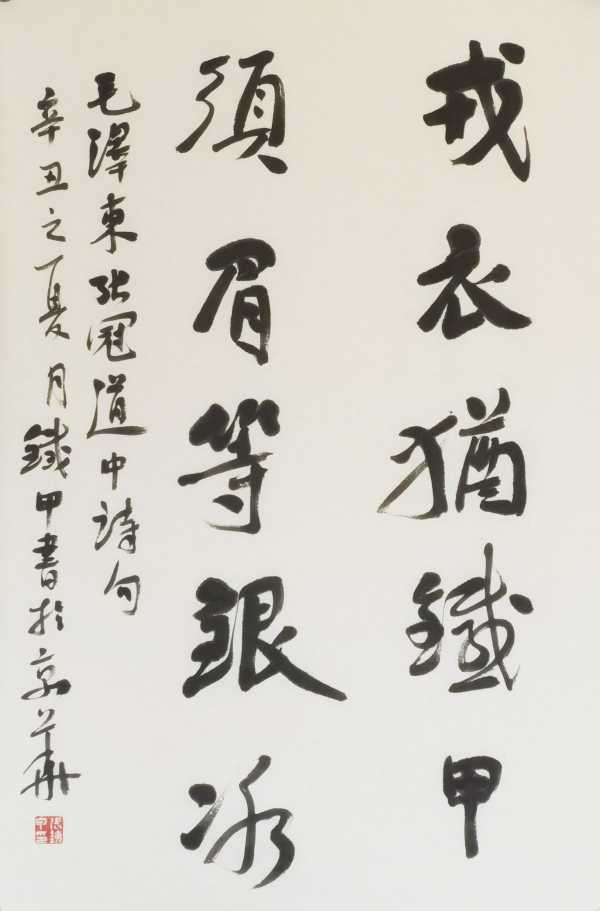 戎衣猶鐵甲
須眉等銀冰
毛澤東張冠道中詩句
辛丑之夏月鐵甲書於京華